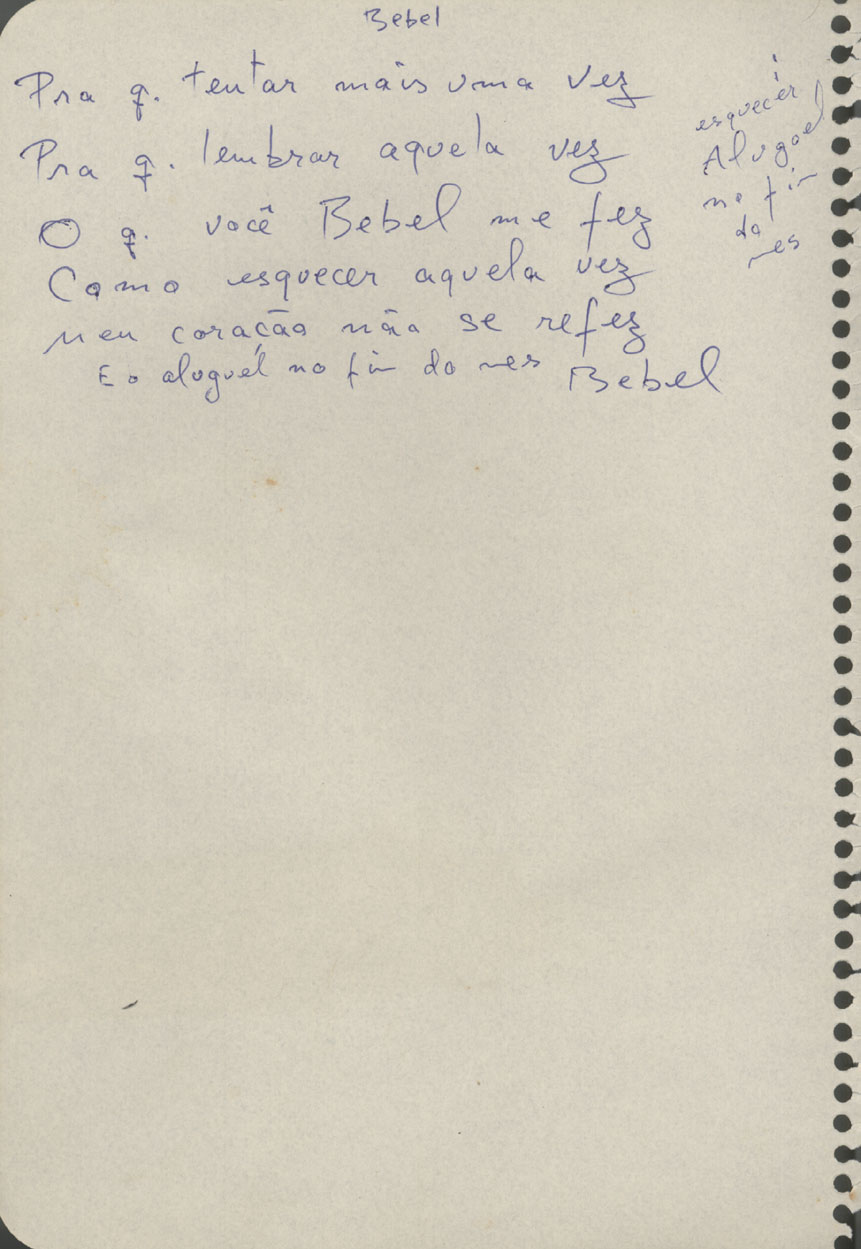 Bebel
Pra q. tentar mais uma vez
Pra q. lembrar aquela vez
O q. você Bebel me fez
Como esquecer aquela vez
Meu coração não se refez
E o aluguél no fim do mes Bebel
esquecer
Aluguel
no fim
do
mes